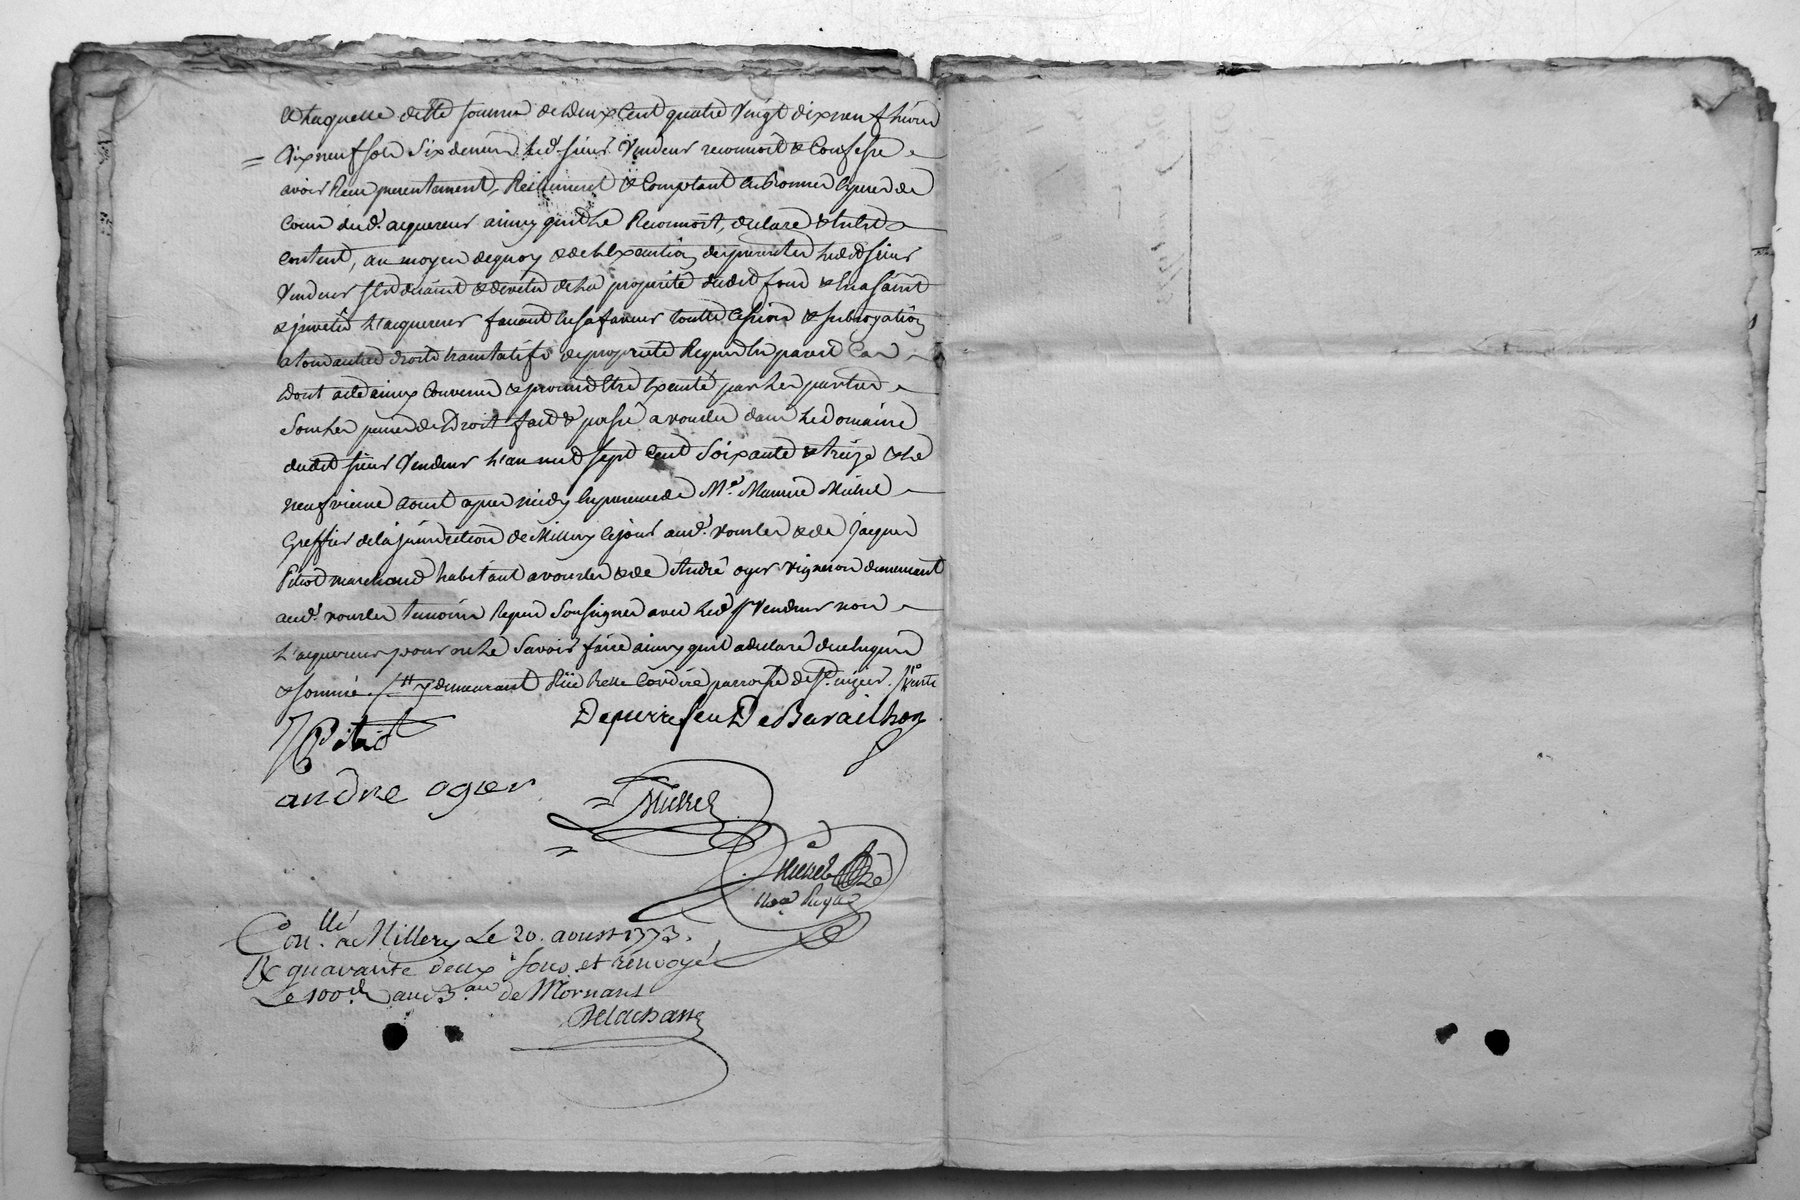 de laquelle ditte somme de deux Cent quatre Vingt dix neuf livres
dix neuf sols Six deniers led. sieur Vendeur reconnoit & Confesse
avoir Reçu presentement, Reellement & Comptant en bonnes especes de
Cours dud. acquereur ainsy quil le Reconnoit, declare &
Content, au moyen dequoy & de l'Execution des presentes ledit sieur
Vendeur s'est demis & devetu de la propriété dudit fond & en a saisit
& jnvetû l'acquereur faisant en sa faveur toutte Cession & subrogation
a tous autres droits translatifs de propriete Requis en pareil Cas
Dont acte ainsy Convenu & promis Etre Execute par les parties
Sous les peines de Droit fait & passé a vourles dans le Domaine
dudit sieur Vendeur l'an mil sept Cent Soixante & treize & le
neufvieme aoust apres midy en presence de Mr. Maurice Michel
Greffier de la jurisdiction de Millery ce jour aud. vourles & de Jacques
Pitiot marchand habitant a vourles & de André oger vigneron demeurant
aud. vourles temoins Requis Soussignés avec led. sr Vendeur non
l'acquereur pour ne le Savoir faire ainsy quil a declaré de ce Enquis
& sommé. /# y demeurant Rüe Belle Cordiere parroisse de St. nizier.
JPitiot
Deperrefeu DeBarailhon
andre oger
Michel
Michel
no.re Royal
Con.llé a Millery Le 20. aoust 1773.
R. quarante deux sous et renvoyé
Le 100.e au 3.au de Mornant
Delachasse